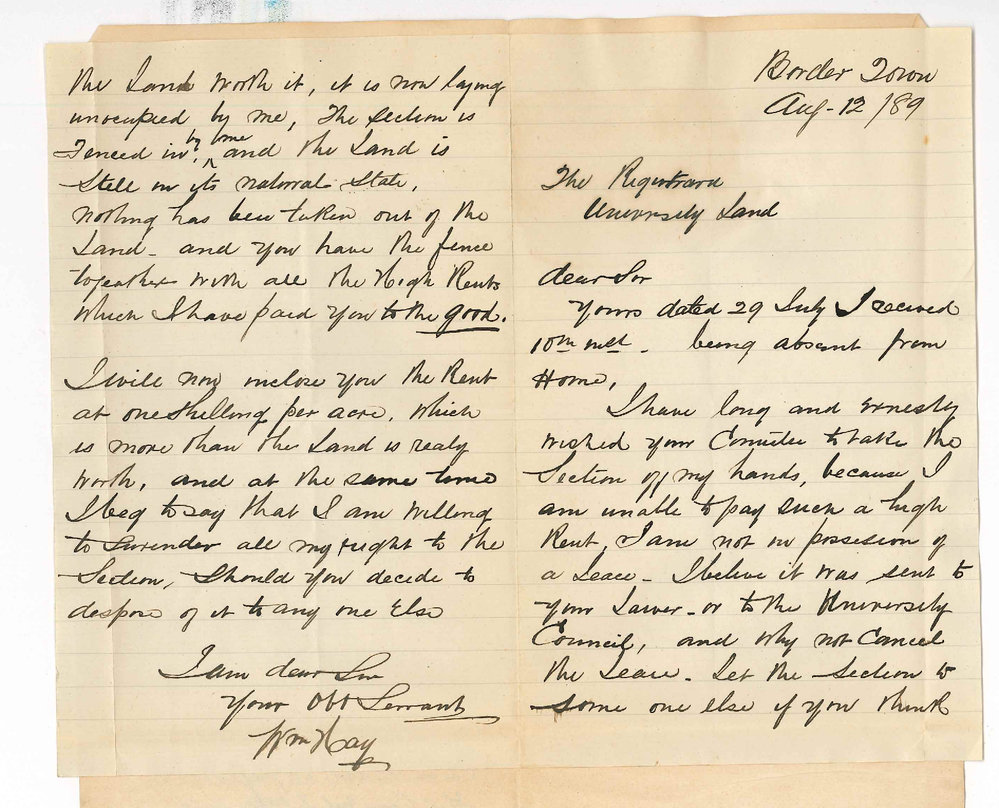 Border Town
Aug - 12 /89
The Registrard
University Land
dear Sir
Yours dated 29 July I receved
10th inst - being absent from
Home,
I have long and ernestly
wished your Comitee to take the
Section off my hands, because I
am unable to pay such a high
Rent, I am not in possesion of
a Leace - I belive it was sent to
your Lawer - or to the University
Council, and why not Cancel
the Leace - Let the Section to
some one else if you think
the Land worth it, it is now laying
unocupied by me, The section is
Fenced in by me and the Land is
Still in its natural State,
nothing has been taken out of the
Land - and you have the fence
together with all the High Rents
which I have paid you to the good.
I will now inclose you the Rent
at one Shilling per acre, which
is more than the Land is realy
worth, and at the same time
I beg to say that I am willing
to Surender all my right to the
Section, Should you decide to
dispose of it to any one Else
I am dear Sir
Your Obt Servant
Wm Hay